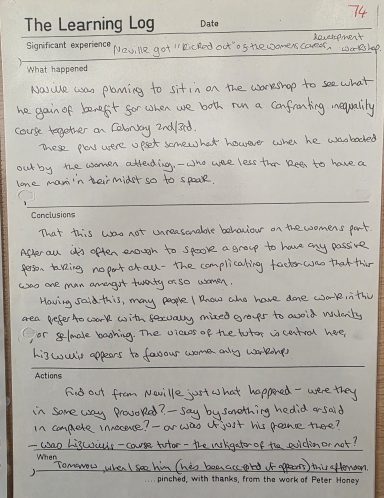 74
The Learning Log Date
development
Significant experience Neville got "kicked out" of the womens career workshop.
What happened
Neville was planning to sit in on the workshop to see what
he gain of benefit for when we both run a confronting inequality
course together on Colonsay 2nd/3rd.
These plans were upset somewhat however when he was booted
out by the women attending - who were less than keen to have a
lone man in their midst so to speak.
Conclusions
That this was not unreasonable behaviour on the womens part.
After all it's often enough to spook a group to have any passive
person taking no part at all - the complicating factor was that this
was one man amongst twenty or so women.
Having said this, many people I know who have done work in this
area prefer to work with sexually mixed groups to avoid
or male bashing. The views of the tutor is central here,
Liz Willis appears to favour women only workshops
Actions
Find out from Neville just what happened - were they
in some way provoked? - say by something he did or said
in complete innocence? - or was it just his presence there?
- was Liz Willis - course tutor - the instigator of the eviction or not?
When
Tomorrow, when I see him (he's been accepted it appears) this afternoon.
.... pinched, with thanks, from the work of Peter Honey